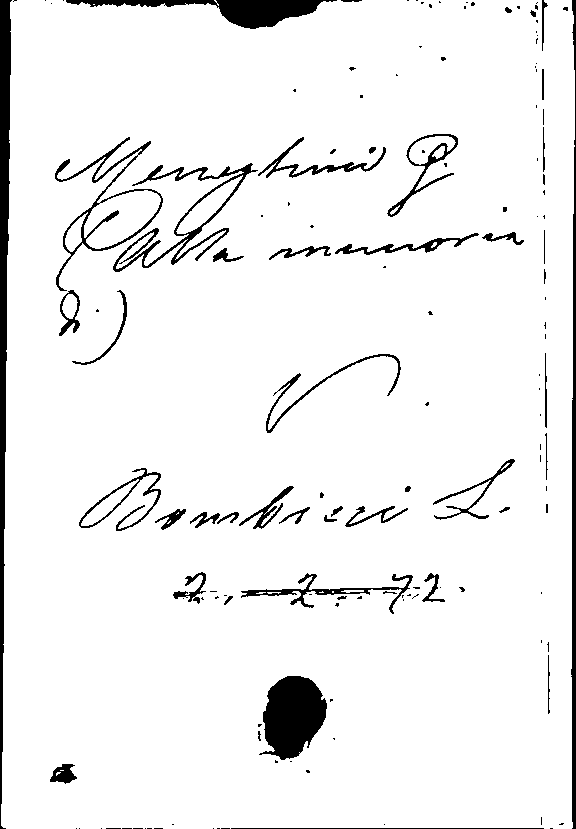 Meneghini G.
(Alla memoria
di)
V
Bombicci L.
2. 2. 72.